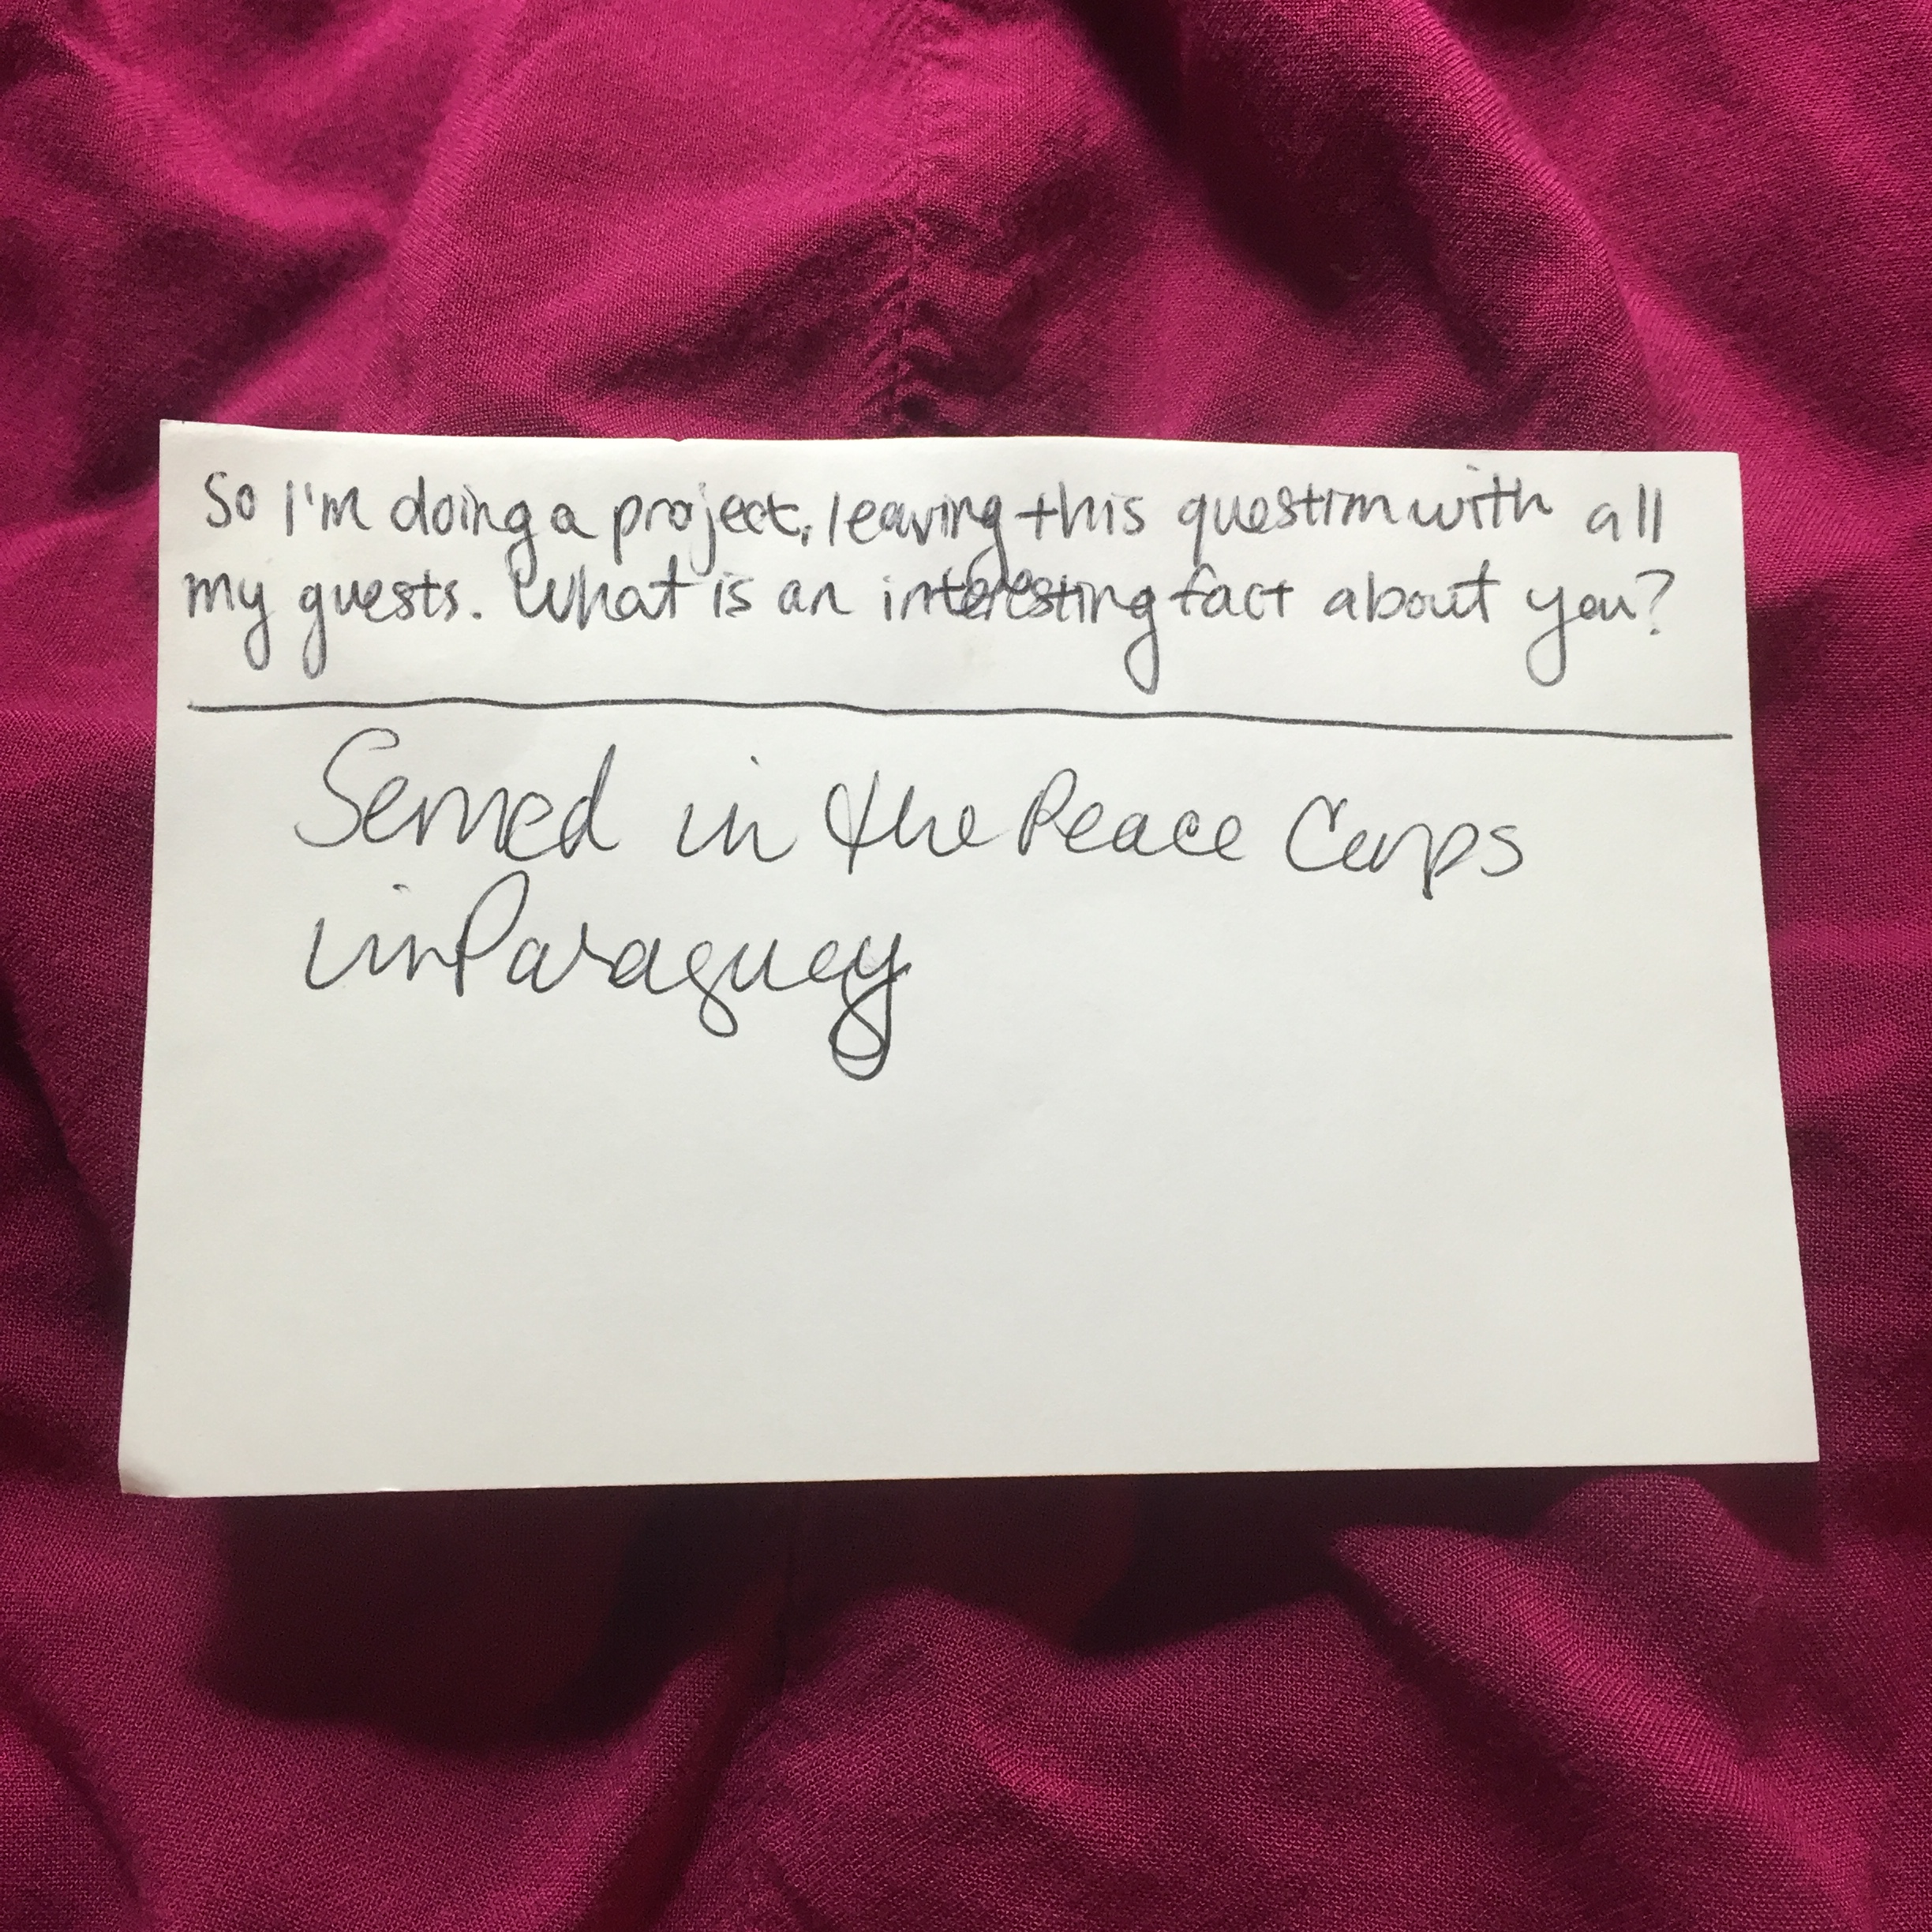 So I'm doing a project, leaving this question with all
my guests. What is an interesting fact about you?
Served in the Peace Corps
in Paraguay